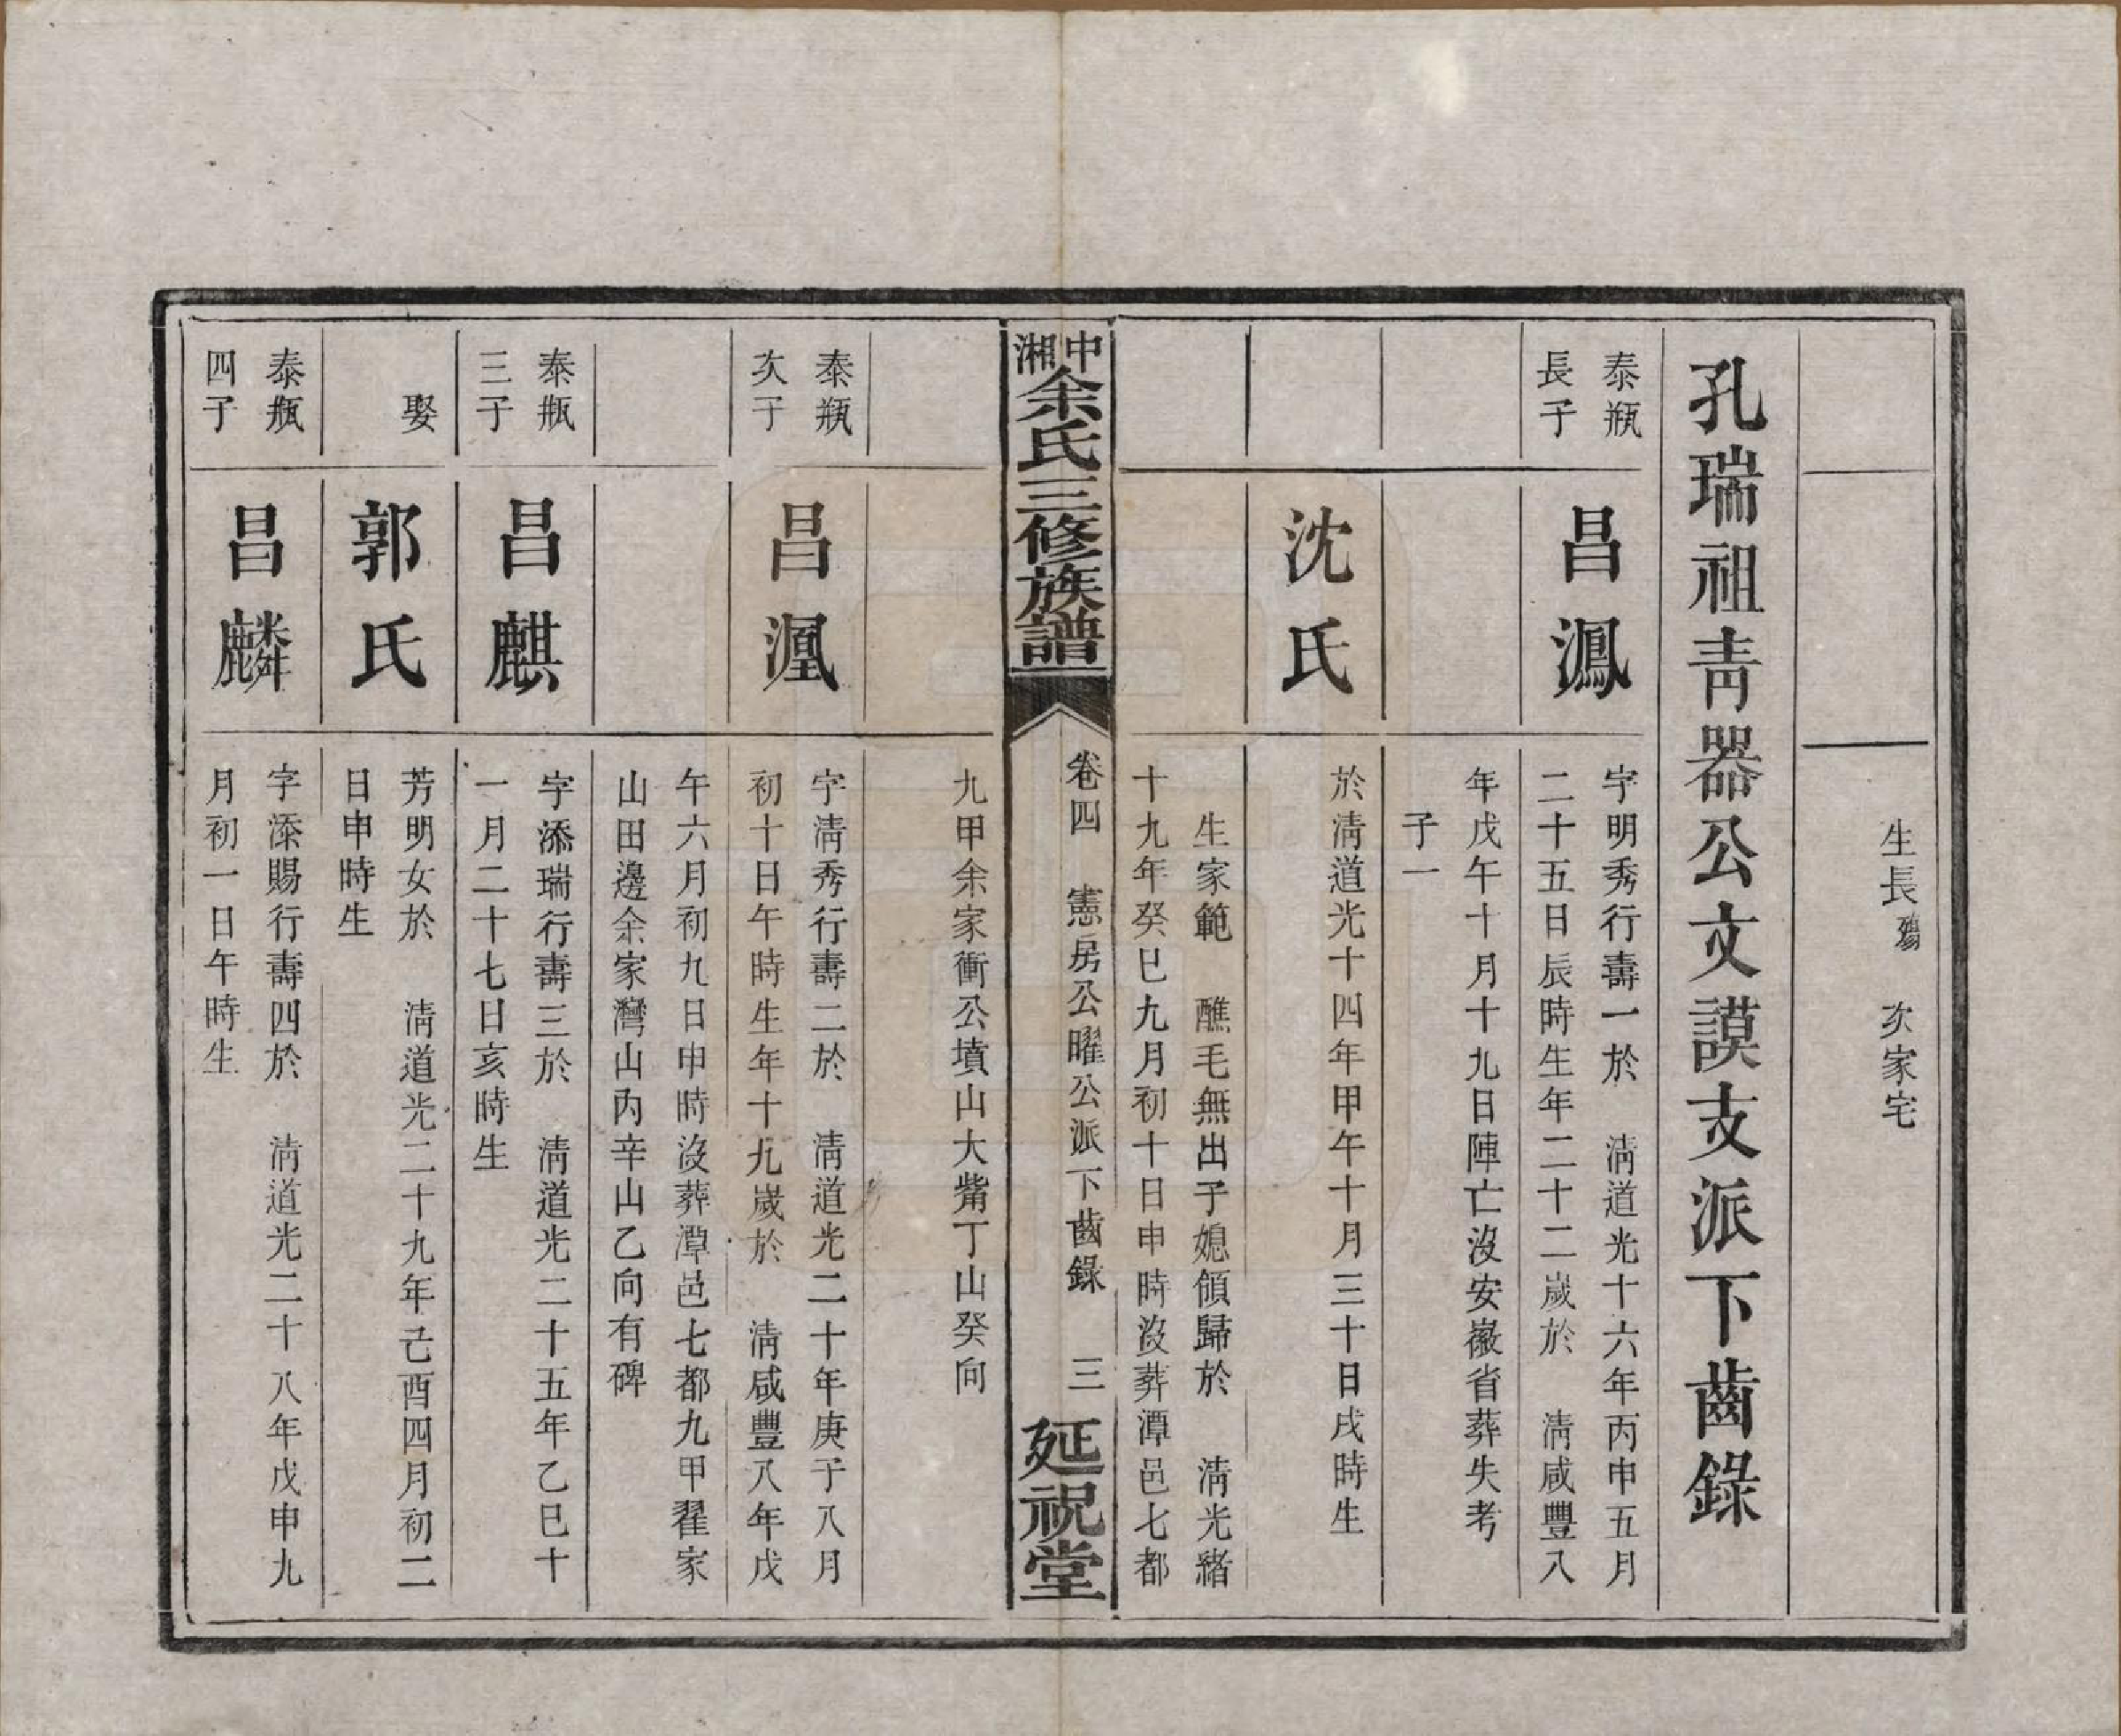 生長殤　次家宅
孔瑞祖靑器公文謨支派下齒錄
泰瓶
長子
昌鳳
字明秀行壽一於　淸道光十六年丙申五月
二十五日辰時生年二十二歲於　淸咸豐八
年戊午十月十九日陣亡沒安徽省葬失考
子一
沈氏
於淸道光十四年甲午十月三十日戌時生
生家範　醮毛無出子媳傾歸於　淸光緖
十九年癸巳九月初十日申時沒葬潭邑七都
中湘余氏三修族譜
卷四　憲房公曜公派下齒錄　三
延祝堂
九甲余家衝公墳山大觜丁山癸向
泰瓶
次子
昌凰
字淸秀行壽二於　淸道光二十年庚子八月
初十日午時生年十九歲於　淸咸豐八年戊
午六月初九日申時沒葬潭邑七都九甲翟家
山田邊余家灣山內辛山乙向有碑
泰瓶
三子
昌麒
字添瑞行壽三於　淸道光二十五年乙巳十
一月二十七日亥時生
娶
郭氏
芳明女於　淸道光二十九年己酉四月初二
日申時生
泰瓶
四子
昌麟
字添賜行壽四於　淸道光二十八年戊申九
月初一日午時生